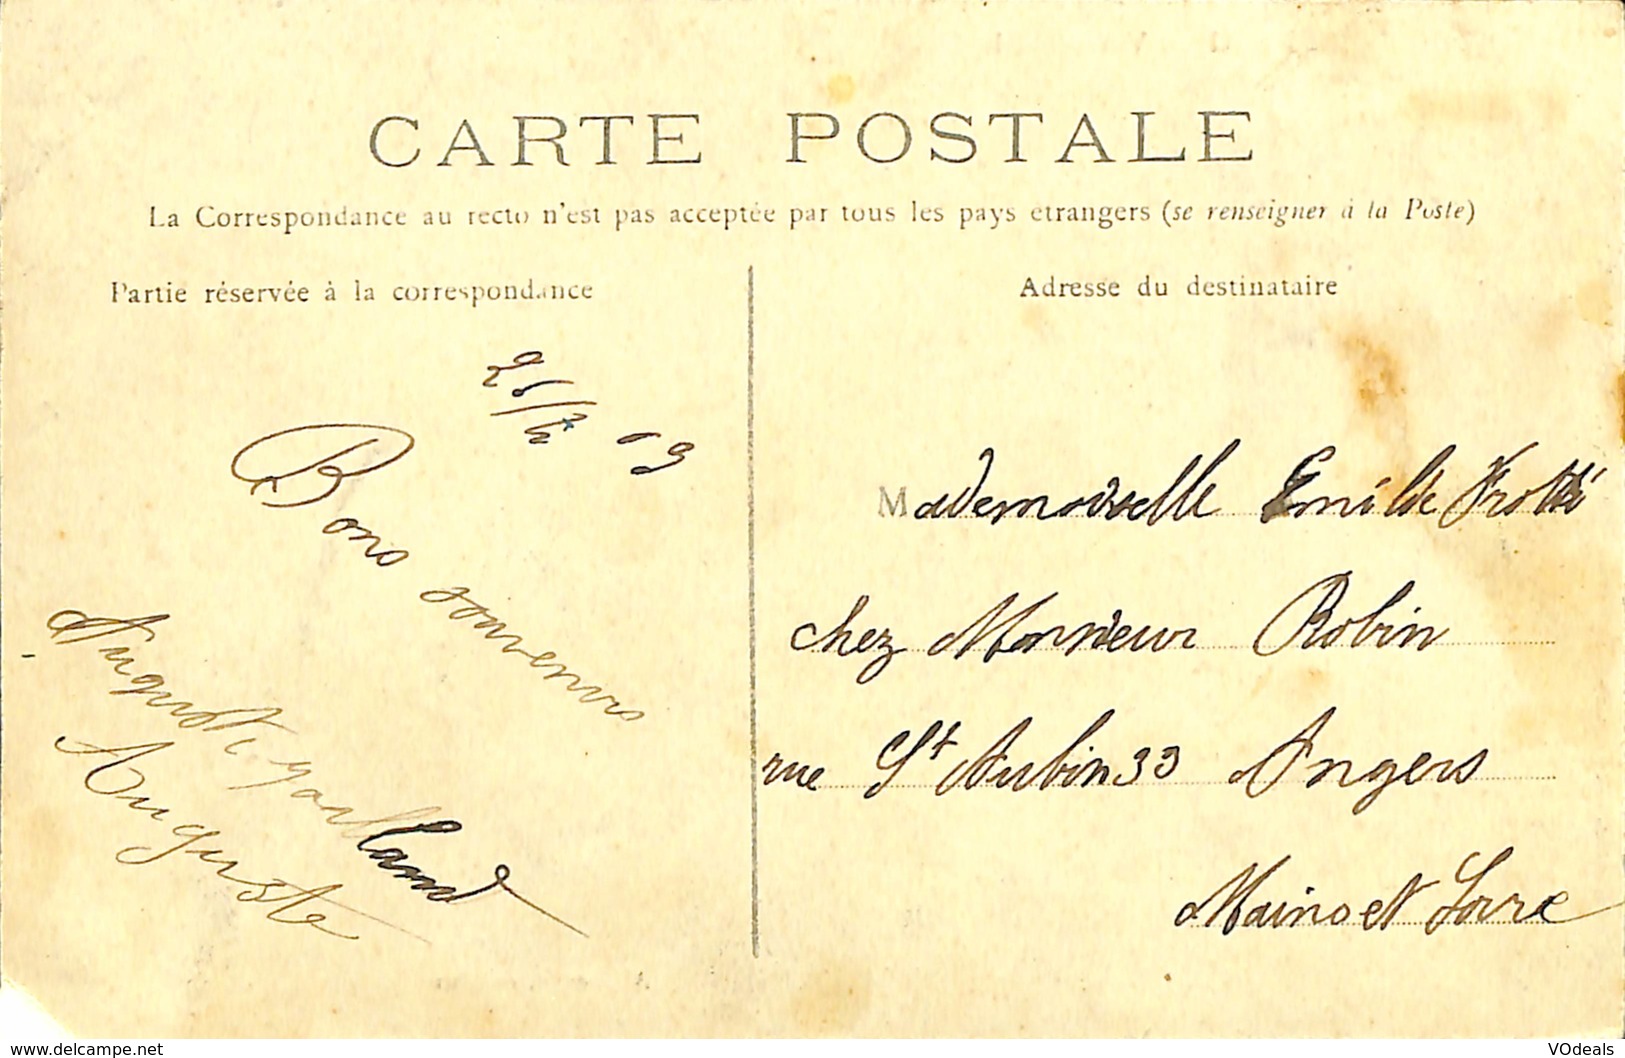 CARTE POSTALE
La Correspondance au recto n'est pas acceptée par tous les pays etrangers (se renseigner à la Poste)
Partie réservée à la correspondance
Adresse du destinataire
09
Bons souvenirs
galland
Auguste
Mademoiselle
chez Monsieur Robin
rue St Aubin 33 Angers
Maine et Loire
www.delcampe.net
VOdeals